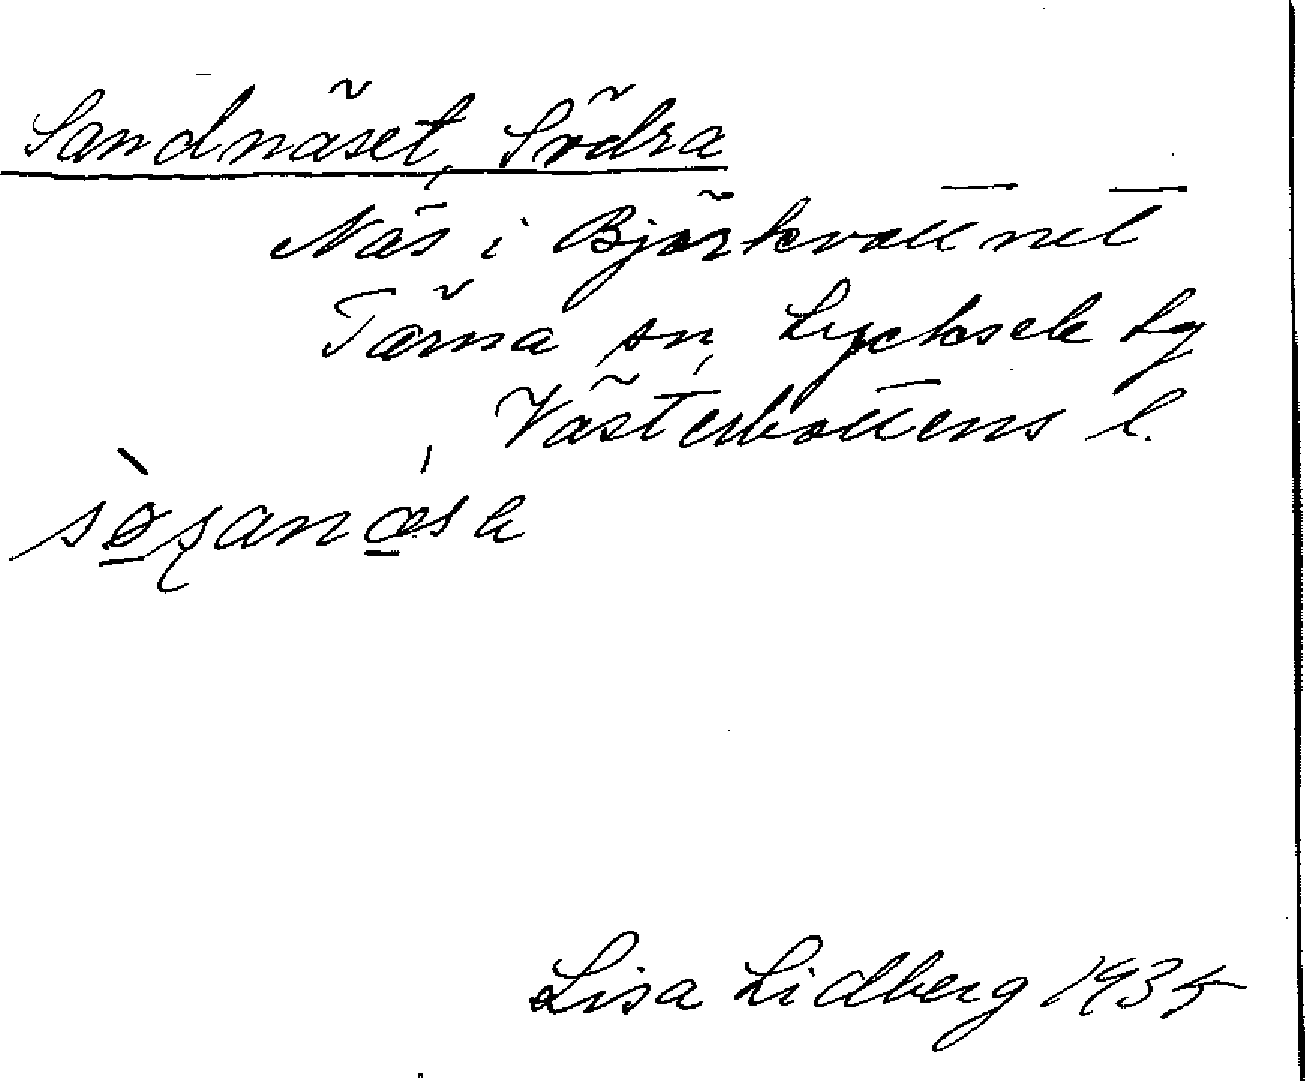 Sandnäset, Södra
Näs i Björkvattnet
Tärna sn, Lycksele lg
Västerbottens l.
Lisa Lidberg 1935